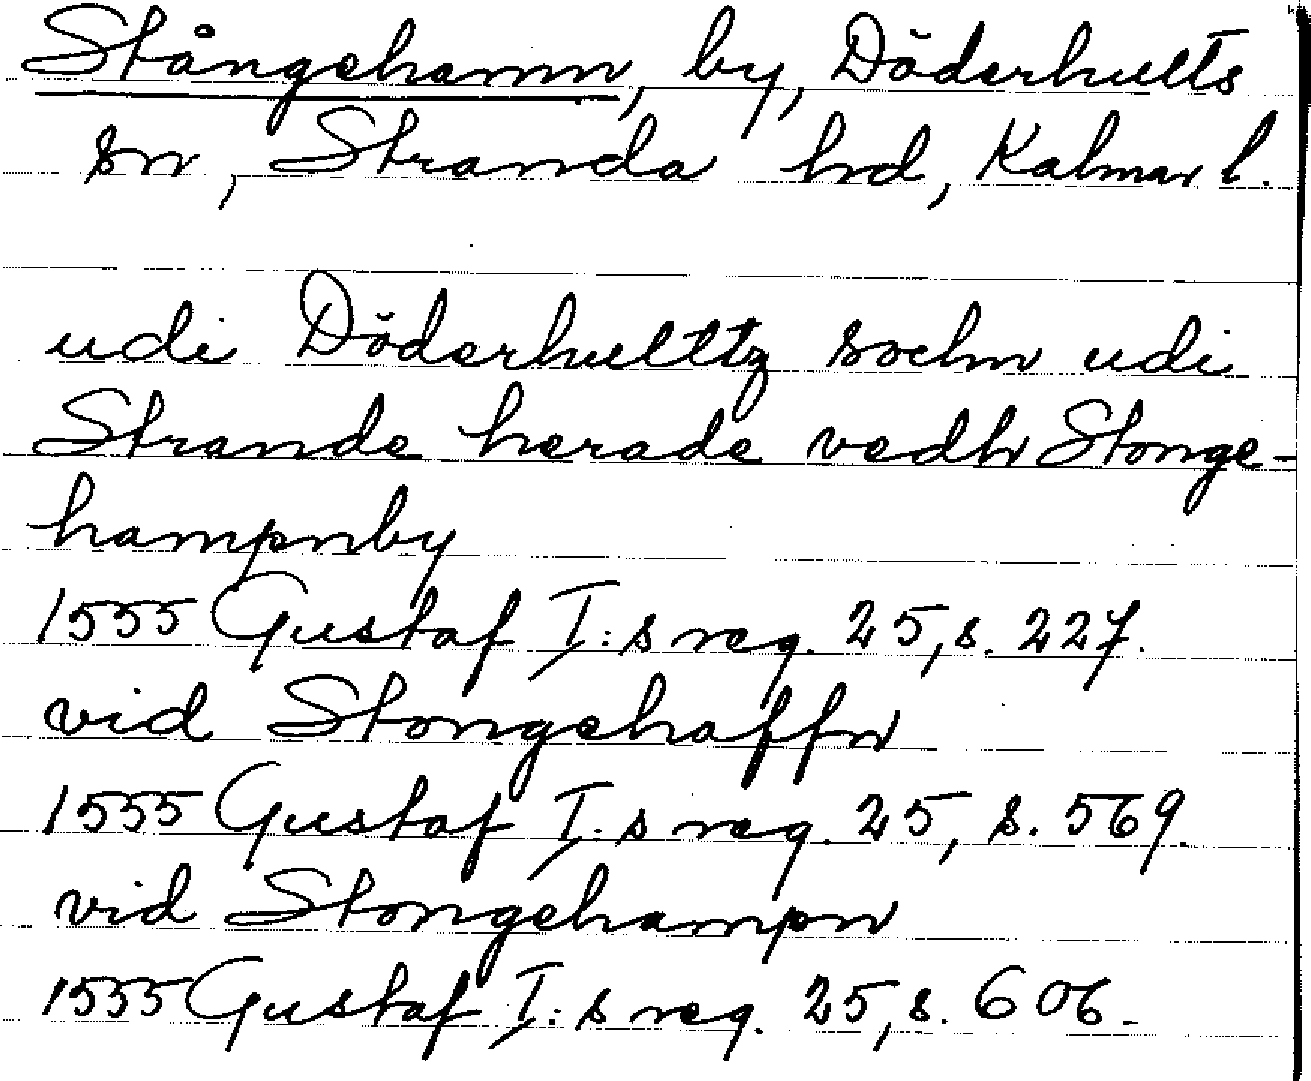 Stångehamn, by, Döderhults
sn, Stranda hd, Kalmar l.
udi Döderhulttz sochn udi
Strande herade vedh Stonge-
hampnby
1555 Gustaf I:s reg. 25, s. 227.
vid Stongehaffn
1555 Gustaf I:s reg. 25, s. 569.
vid Stongehampn
1555 Gustaf I:s reg. 25, s. 606.